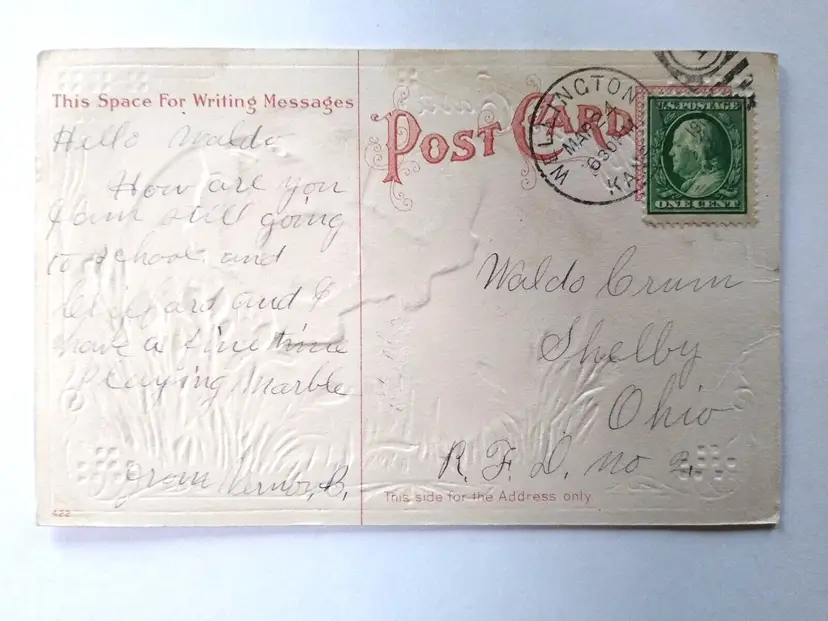 This Space For Writing Messages
Hello Waldo
How are you
I am still going
to school and
and I
have a fine time
Playing Marble
From Vernon, B.
422
POST CARD
WELLINGTON
MAR 24
630 PM
KANS
19
U.S. POSTAGE
ONE CENT
Waldo Crum
Shelby
Ohio
R. F. D. no 2,
This side for the Address only